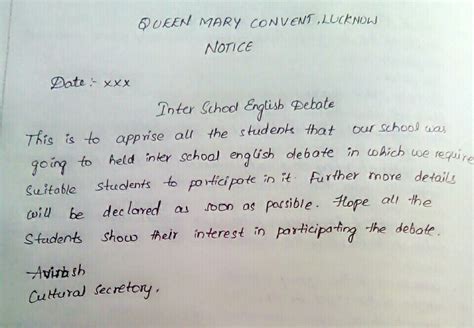 QUEEN MARY CONVENT, LUCKNOW
NOTICE
Date :- xxx
Inter School English Debate
This is to apprise all the students that our school was
going to held inter school english debate in which we require
Suitable students to participate in it. Further more details
will be declared as soon as possible. Hope all the
Students show their interest in participating the debate.
Avinash
Cultural Secretory.